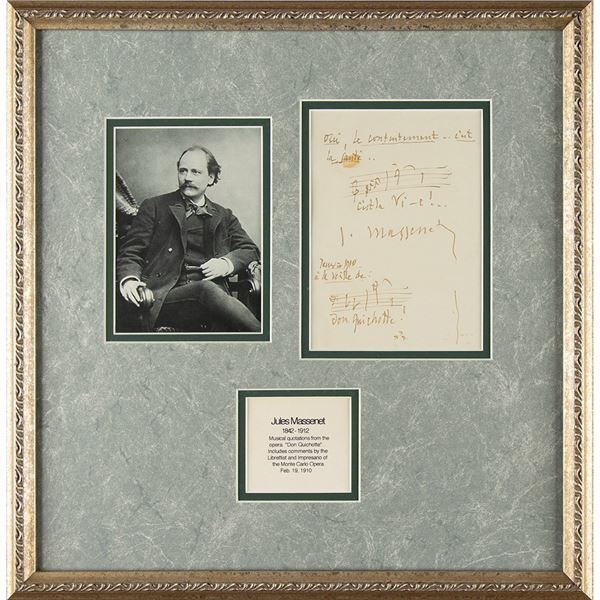 Oui, le contentement .. c'est
la santé ..
c'est la Vi-e! ...
J. Massenet
1910
à la veille de:
Don Quichotte!
Jules Massenet
1842 - 1912
Musical quotations from the
opera "Don Quichotte"
Includes comments by the
Librettist and Impresario of
the Monte Carlo Opera
Feb. 19, 1910